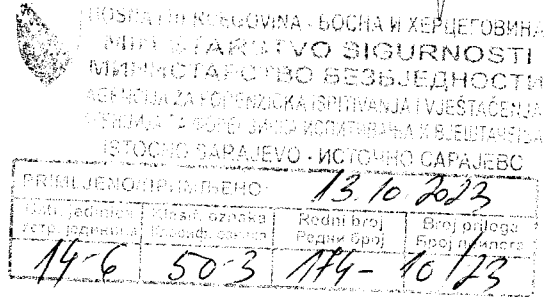 BOSNA I HERCEGOVINA - БОСНА И ХЕРЦЕГОВИНА
MINISTARSTVO SIGURNOSTI
МИНИСТАРСТВО БЕЗБЈЕДНОСТИ
AGENCIJA ZA FORENZIČKA ISPITIVANJA I VJEŠTAČENJA
АГЕНЦИЈА ЗА ФОРЕНЗИЧКА ИСПИТИВАЊА И ВЈЕШТАЧЕЊА
ISTOČNO SARAJEVO - ИСТОЧНО САРАЈЕВО
PRIMLJENO/ПРИМЉЕНО: 13.10.2023
jedinica Klasif. oznaka Redni broj Broj priloga
јединица Класиф. ознака Редни број Број прилога
14-6 50-3 174- 10/23